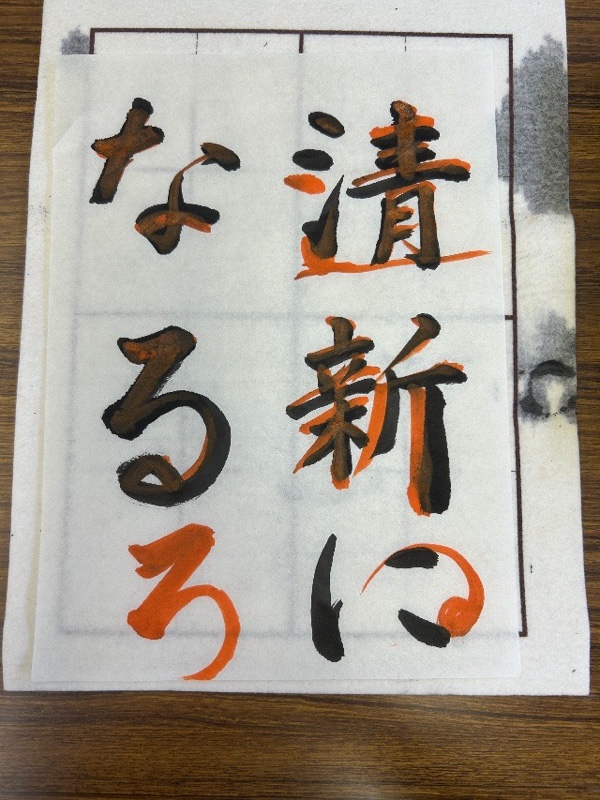 清新に
なるろ